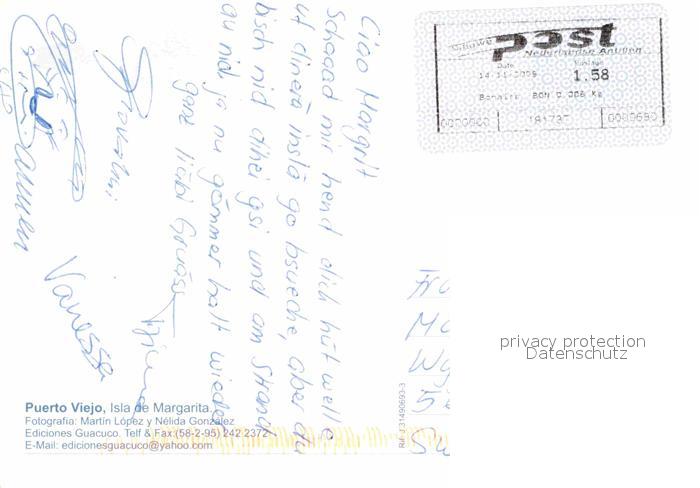 Ciao Margrit
Schaaad mir hend dich hüt welle
uf dinerä inslä go bsueche, aber du
bisch nid dihei gsi und am Strand
au nid ja nu gömmer halt wieder
ganz liäbi Grüäss
Giovanni
Vanessa
Post
Nederlandse Antillen
Date
14-11-2009
1.58
Bonaire BON 0.006 Kg
181797
Fr
Ma
W
5
Su
privacy protection
Datenschutz
Puerto Viejo, Isla de Margarita.
Fotografía: Martín López y Nélida González
Ediciones Guacuco. Telf & Fax:(58-2-95) 242 2372
E-Mail: edicionesguacuco@yahoo.com
Ref J 31490693-3